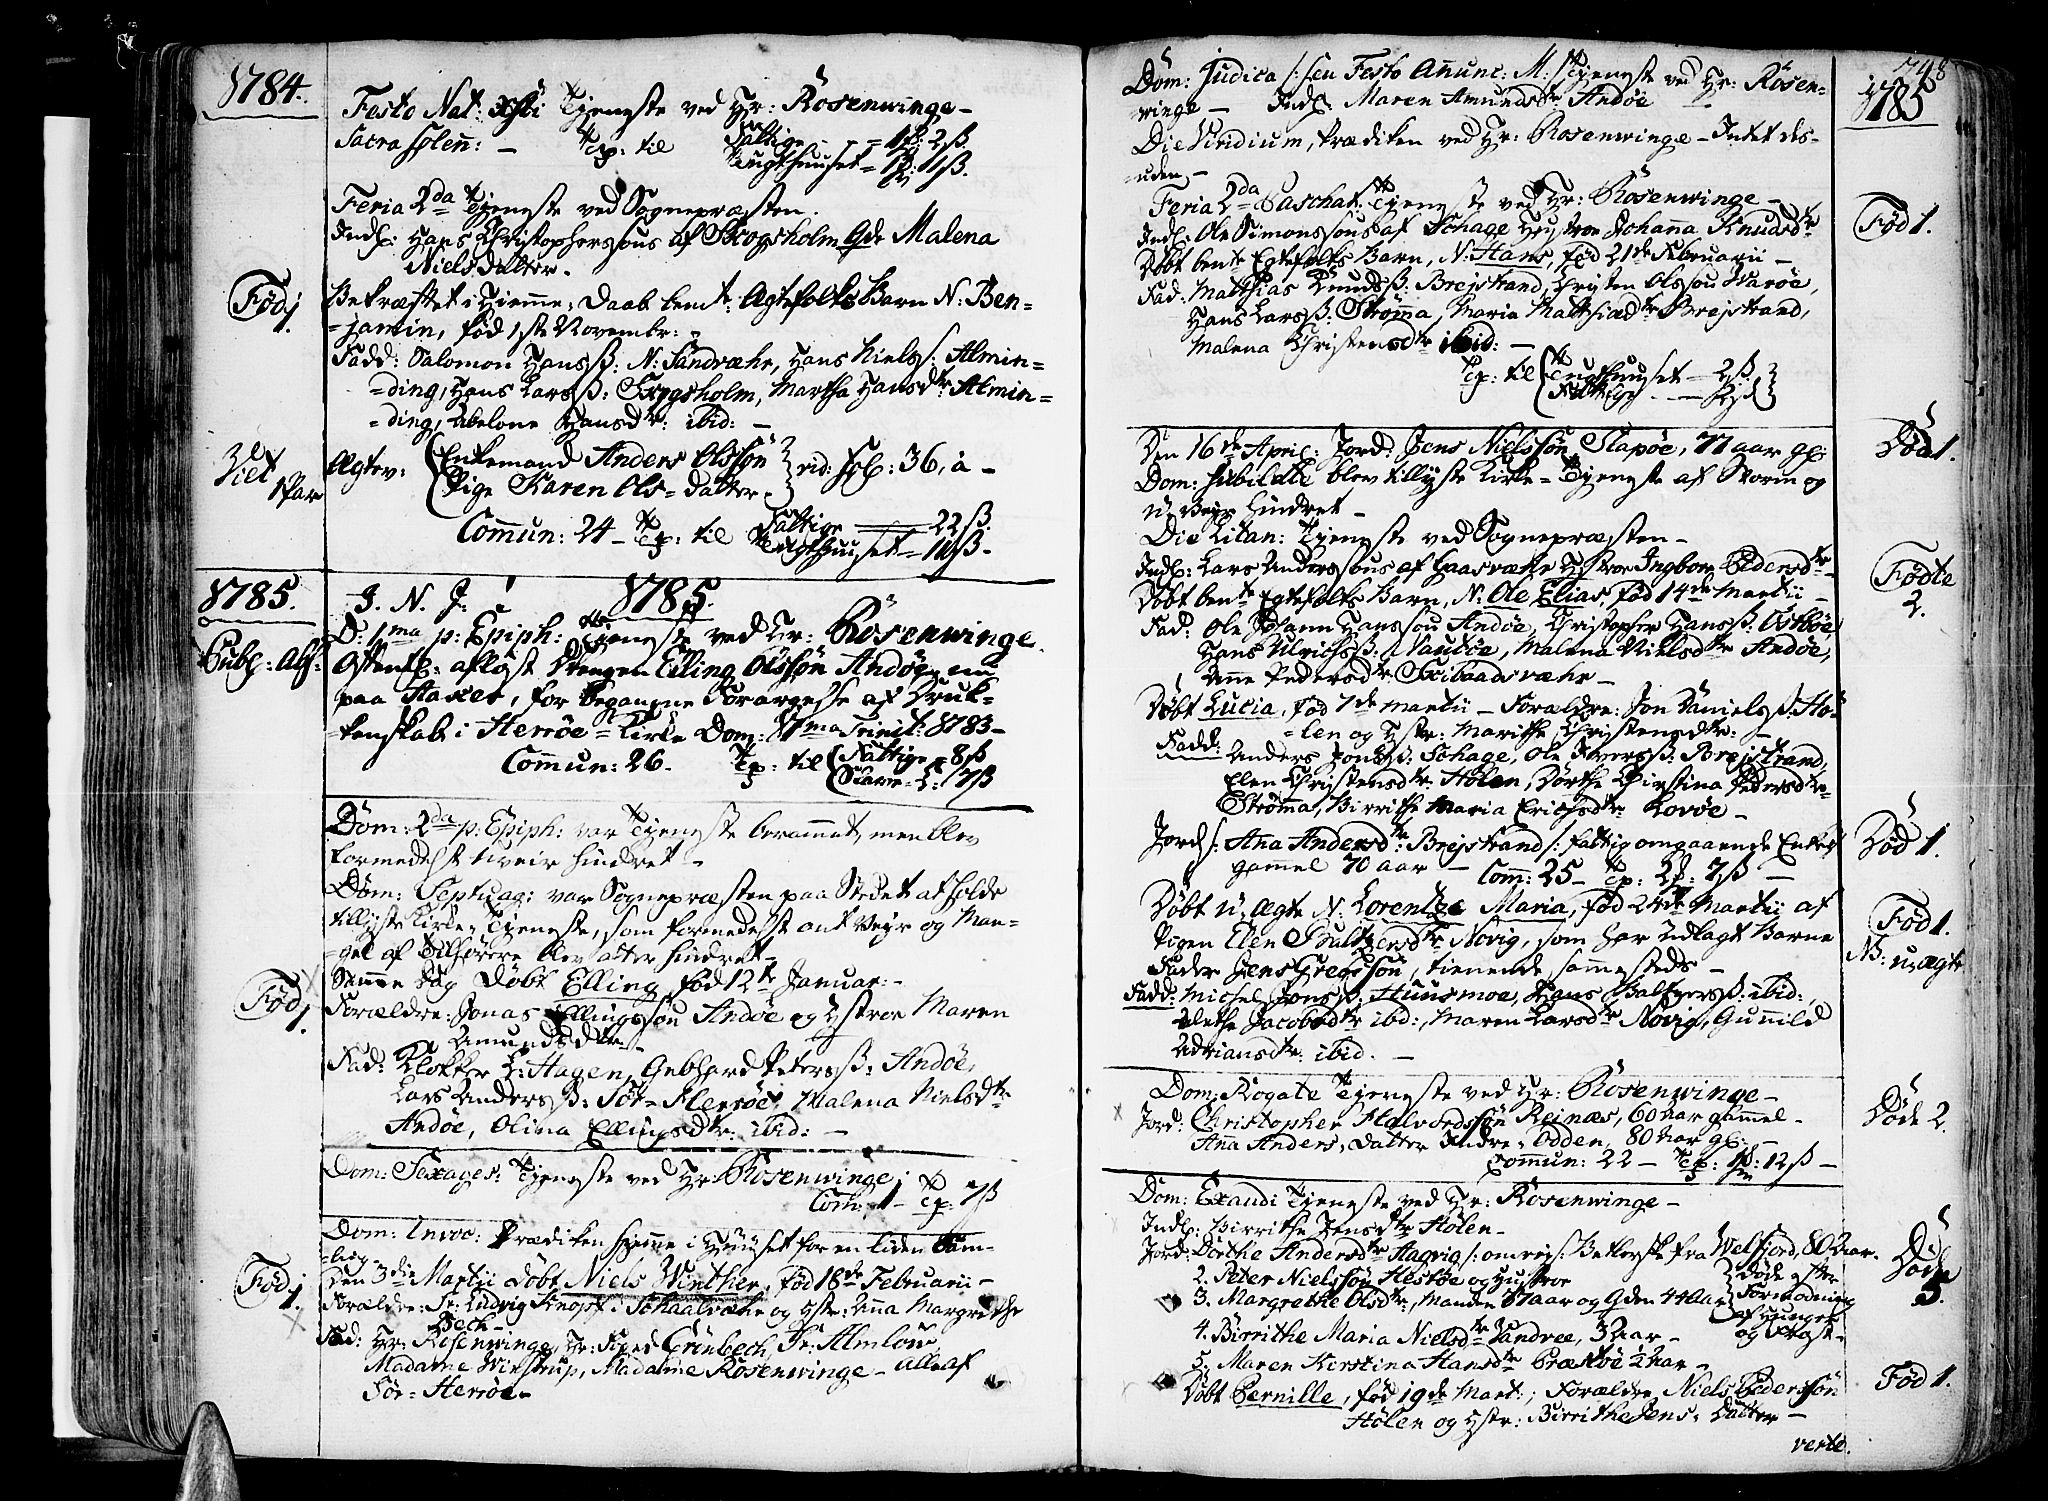 1784.
Festo Nat: Xsti Tjeneste ved Hr: Rosenwinge –
Sacra solenn: – Tp: til Fattige – – = 1 : 2 ß
Tugthuuset = 1 : 11 ß.
Feria 2da Tjeneste ved Sognepræsten.
Indl: Hans Christophersøns af Skogsholm Qde Malena
Nielsdatter.
Fød 1.
Bekræftet i Hiemme-Daab bemte Ægtefolks Barn N: Ben=
=jamin, fød 1ste Novembr: –
Fadd: Salomon Hansß: N: Sandvæhr, Hans Nielsß: Almin=
=ding, Hans Larsß: Skogsholm, Martha Hansdtr Almin=
=ding, Abelone Hansdtr: ibid: –
Viet 1 Par
Ægtev: Enkemand Anders Olssøn
Pige Karen Ols=datter vid: fol: 36, a –
Commun: 24 – Tp: til Fattige — 22 ß.
Tugthuuset = 11 ß –
1785. J. N. J. 1785.
D: 1ma p: Epiph: Tjeneste ved Hr: Rosenwinge.
Publ: Abs:
Offentl: afløst Drengen Elling Olssøn Andøe, nu
paa Staxet, for begangne Forargelse af Druk=
=kenskab i Herrøe=Kirke Dom: 17ma Trinit: 1783 –
Commun: 26. Tp: til Fattige = 8 ß
Slawe-C: 17 ß
Dom: 2da p: Epiph: var Tjeneste berammet, men blev
formedelst Uveir hindret –
Dom: Septuag: var Sognepræsten paa Stedet at holde
tillyste Kirke-Tjeneste, som formedelst ont Veyr og Man=
=gel af Tilhørere blev atter hindret –
Samme Dag Døbt Elling, fød 12te Januar: –
Fød 1.
Forældre: Jonas Ellingssøn Andøe og Hstroe Maren
Amundsdtr
Fad: Klokker H: Hagen, Gebhard Petersß: Andøe,
Lars Andersß: Sør=Herrøe, Malena Nielsdtr
Andøe, Olina Ellingsdtr: ibid: –
Dom: Sexages: Tjeneste ved Hr Rosenwinge,
Com: 1 – Tp: 7 ß
Dom: Invoc: Prædiken hjemme i Huuset for en liden Sam=
=ling –
Den 3die Martii døbt Niels Winther, fød 18de Februarii –
Fød 1.
Forældre: Sr: Ludvig Knopf i Schaalvæhr og Hstr: Anna Margrethe
Bech –
Fad: Hr: Rosenwinge, Hr: Grünbech, Sr: Almlou
Madame Wirstrup, Madame Rosenwinge – alle af
Sør=Herrøe –
748
1785
Dom: Judica /: seu Festo Anunc: M: /: Tjeneste ved Hr: Rosen=
=winge – Indl: Maren Amundsdtr Andøe –
Die Viridium, Prædiken ved Hr: Rosenwinge – Intet des-
=uden –
Feria 2da Paschat: Tjeneste ved Hr: Rosenwinge –
Fød 1.
Indl: Ole Simonssøns af Schage Hustroe Johanna Knudsdtr
Døbt bemte Egtefolks Barn, N: Hans, fød 21de Februarii –
Fad: Matthias Knudsß: Brejstrand, Christen Olssøn Varøe,
Hans Larsß: Strømma, Maria Matthiædtr Brejstrand,
Malena Christensdtr ibid: –
Tp: til Tugthuuset – 2 ß
Fattige – –
Den 16de April: Jord: Jens Nielssøn Slapøe, 77 aar gl:
Død 1.
Dom: Jubilate blev tillyste Kirke=Tjeneste af Storm og
U-Veyr hindret –
Die Litan: Tjeneste ved Sognepræsten –
Indl: Lars Anderssøns af Haasvæhr Hstroe Ingborr Pedersdtr
Fødte 2.
Døbt bemte Egtefolks Barn, N: Ole Elias, fød 14de Martii –
Fad: Ole Johann Hanssøn Andøe, Christopher Hansß: Østbøe,
Hans Ulrichsß: Nautøe, Malena Nielsdtr Andøe,
Anne Pedersdtr: Skibaadsvæhr –
Døbt Lucia, fød 7de Martii – Forældre: Jon Danielsß: Hø=
=len og Hstr: Marithe Christensdtr: –
Fadd: Anders Jonsß: Schage, Ole Iversß: Brejstrand,
Elen Christensdtr: Hølen, Dorthe Christina Pedersdtr=
Strømma, Birrithe Maria Erichsdtr Lovøe –
Jord: Ana Andersdtr: Brejstrand /: fattig omgaaende Enke /:
Død 1.
gammel 70 aar – Comm: 25 – Tp: 7 ß –
Døbt U-ægte N: Lorentze Maria, fød 24de Martii af
Fød 1.
Pigen Elen Baltzersdtr Novig, som har udlagt Barne
NB: u-ægte
Fader Jens Gregssøn, tienende sammesteds –
Fadd: Michel Jonsß: Huusmoe, Hans Baltzersß: ibid:,
Alethe Jacobsdtr ibd:, Maren Larsdtr Novig, Gunnild
Adriansdtr: ibid. –
Dom: Rogate Tjeneste ved Hr: Rosenwinge –
Jord: Christopher Halvordssøn Reinæs, 60 aar gammel –
Døde 2.
Ana Anders-datter Indre-Odden, 80 aar gl: –
Commun: 22 – Tp: 1 : 12 ß –
Dom: Exaudi Tjeneste ved Hr: Rosenwinge –
Indl: Birrithe Jensdtr Hølen –
Jord: Dorthe Andersdtr Hagvig /: omrejs: Betlerske fra Welfjord, 80 Aar.
Døde 5.
2. Peter Nielssøn Hestøe og Hustroe
3. Margrethe Olsdtr:, Manden 77 aar og Qden 44 Aar
døde efter Formodning af Hunger og Frost –
4. Birrithe Maria Nielsdtr Sandvee, 3 Aar –
5. Maren Kirstina Hansdtr Præstøe 1/2 Aar –
Døbt Pernille, fød 19de Mart:, Forældre Niels Pederssøn
Fød 1.
Hølen og Hstr: Birrithe Jens-Datter –
verte.